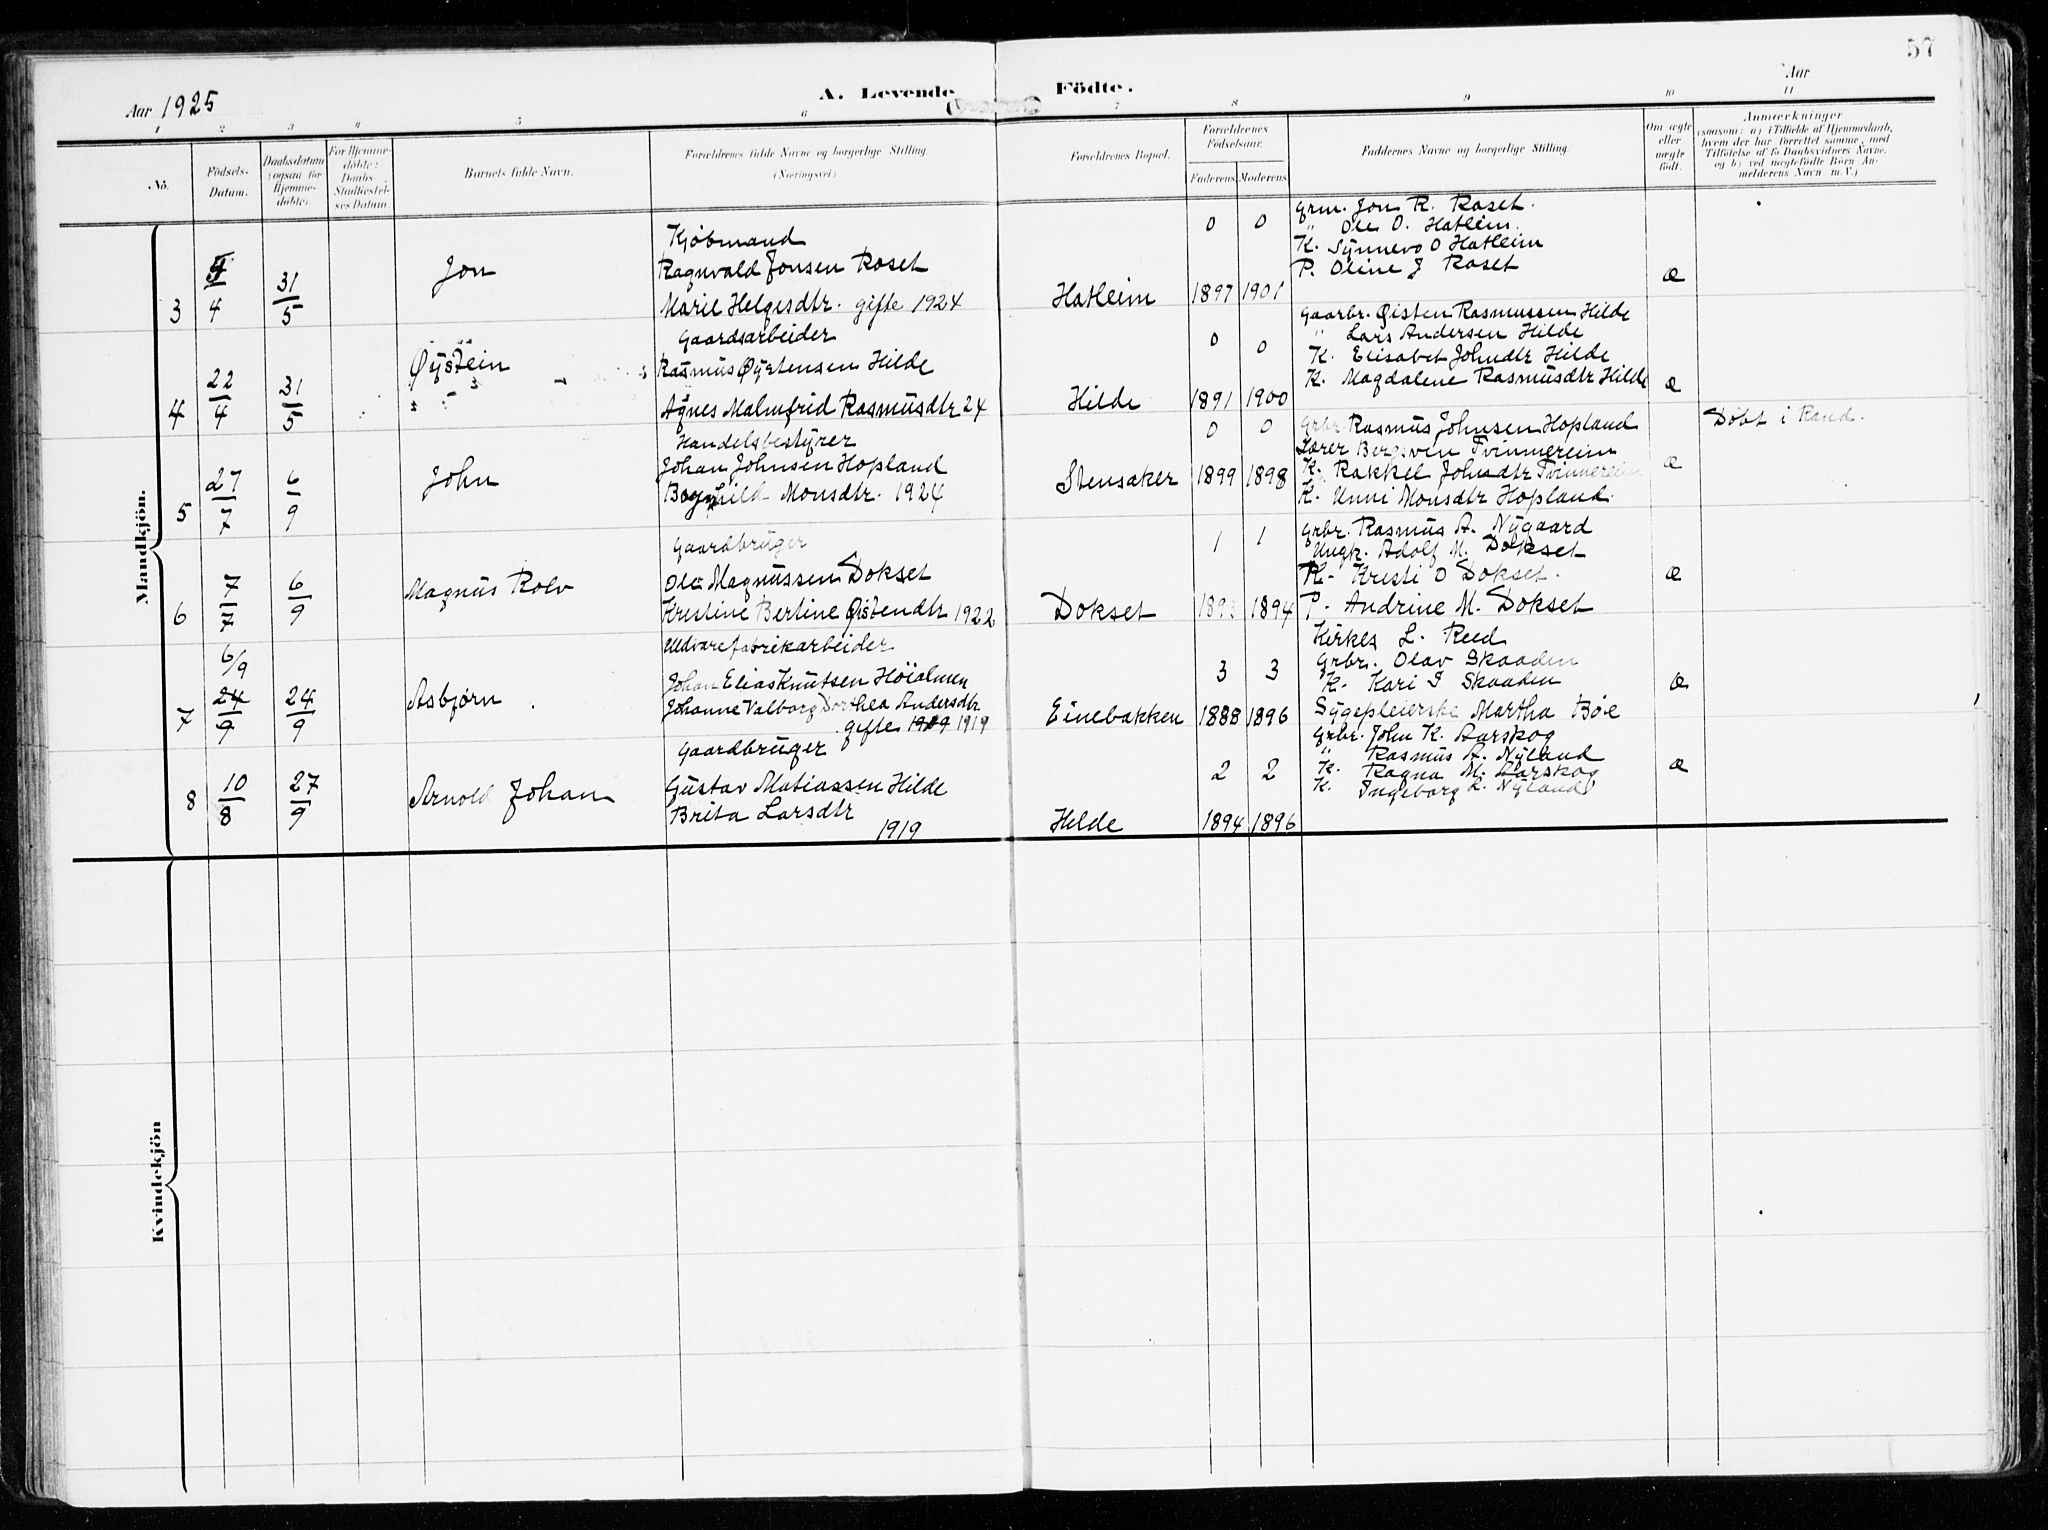 57
Aar 1925
A. Levende
Födte.
Aar
1 2 3 4 5 6 7 8 9 10 11
Nô.
Födsels-
Datum.
Daabsdatum
(ogsaa for
Hjemme-
döbte).
For Hjemme-
döbte:
Daabs-
Stadfæstel-
ses Datum.
Barnets fulde Navn.
Forældrenes fulde Navne og borgerlige Stilling.
(Næringsvei.)
Forældrenes Bopæl.
Forældrenes
Födselsaar.
Faderens. Moderens.
Faddernes Navne og borgerlige Stilling.
Om ægte
eller
uægte
födt.
Anmærkninger
(saasom: a) i Tilfælde af Hjemmedaab,
hvem der har forrettet samme, med
Tilföielse af to Daabsvidners Navne,
og b) ved uægtefödte Börn An-
melderens Navn m. V.)
Mandkjön.
3
4
31
5
Jon
Kjøbmand
Ragnvald Jonsen Roset
Marie Helgesdtr. gifte 1924
Hatleim
0 0
1897 1901
Grm. Jon R. Roset.
" Ole O. Hatleim.
K. Synneve O Hatleim
P. Oline J Roset
Æ
4
22
4
31
5
Øystein
Gaardsarbeider
Rasmus Øystensen Hilde
Agnes Malmfrid Rasmusdtr 24
Hilde
0 0
1891 1900
Gaarbr. Øisten Rasmussen Hilde
" Lars Andersen Hilde
K. Elisabet Johndtr Hilde
K. Magdalene Rasmusdtr Hilde
Æ
5
27
7
6
9
John
Handelsbestyrer
Johan Johnsen Hopland
Monsdtr. 1924
Stensaker
0 0
1899 1898
Grbr. Rasmus Johnsen Hopland
Lærer Bergsvein Tvinnereim
K. Rakkel Johndtr Tvinnereim
K. Unni Monsdtr Hopland
Æ
Døbt i Rand.
6
7
7
6
9
Magnus Rolv
Gaardbruger
Ole Magnussen Dokset
Kristine Bertine Øistendtr 1922
Dokset
1 1
1893 1894
Grbr. Rasmus A. Nygaard
Ungk. Adolf M. Dokset
K. Kristi O Dokset.
P. Andrine M. Dokset
Æ
7
6/9
24
9
24
9
Asbjørn
Uldvarefabrikarbeider
Johan Elias Knutsen Höialmen
Johanne Valborg Dorthea Andersdtr
gifte 1909 1919
Einebakken
3 3
1888 1896
Kirkes L. Reed
Grbr. Olav Skaaden
K. Kari I Skaaden
Sygepleierske Martha Bøe
Æ
8
10
8
27
9
Arnold Johan
Gaardbruger
Gustav Matiassen Hilde
Brita Larsdtr
1919
Hilde
2 2
1894 1896
Grbr. John K. Aarskog
" Rasmus A. Nyland
K. Ragna M. Aarskog
K. Ingeborg L. Nyland
Æ
Kvindekjön